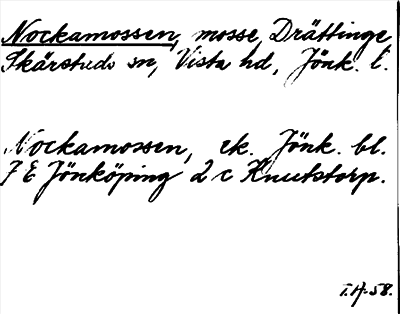 Nockamossen, mosse, Drättinge
Skärstads sn, Vista hd, Jönk. l.
Nockamossen, ek. Jönk. bl.
7 E Jönköping 2 c Knutstorp.
T.H. 58.